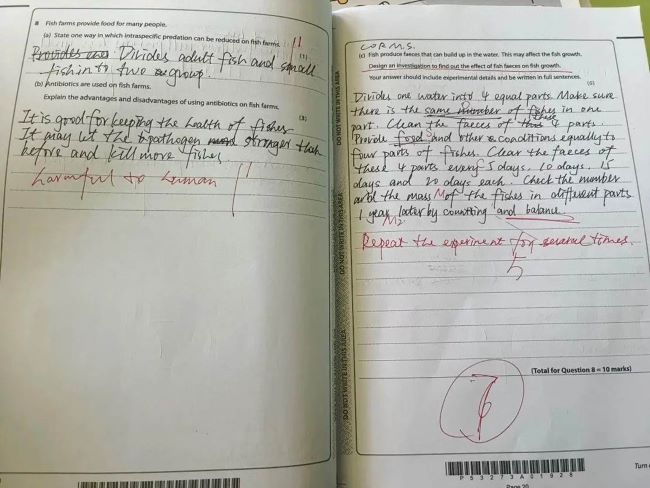 8 Fish farms provide food for many people.
(a) State one way in which intraspecific predation can be reduced on fish farms.
(1)
Provides Divides adult fish and small
fish into two group.
(b) Antibiotics are used on fish farms.
Explain the advantages and disadvantages of using antibiotics on fish farms.
(3)
It is good for keeping the health of fishes.
It may let the pathogen stronger than
before and kill more fishes.
harmful to human
DO NOT WRITE IN THIS AREA
DO NOT WRITE IN THIS AREA
DO NOT WRITE IN THIS AREA
CORMS.
(c) Fish produce faeces that can build up in the water. This may affect the fish growth.
Design an investigation to find out the effect of fish faeces on fish growth.
Your answer should include experimental details and be written in full sentences.
(6)
Divides one water into 4 equal parts. Make sure
there is the same number of fishes in one
part. Clean the faeces of these 4 parts.
Provide food and other conditions equally to
four parts of fishes. Clear the faeces of
these 4 parts every 5 days, 10 days, 15
days and 20 days each. Check the number
and the mass M of the fishes in different parts
1 year later by counting and balance.
M2
Repeat the experiment for several times.
5
(Total for Question 8 = 10 marks)
7
P 5 3 2 7 3 A 0 1 9 2 8
Turn
Page 20